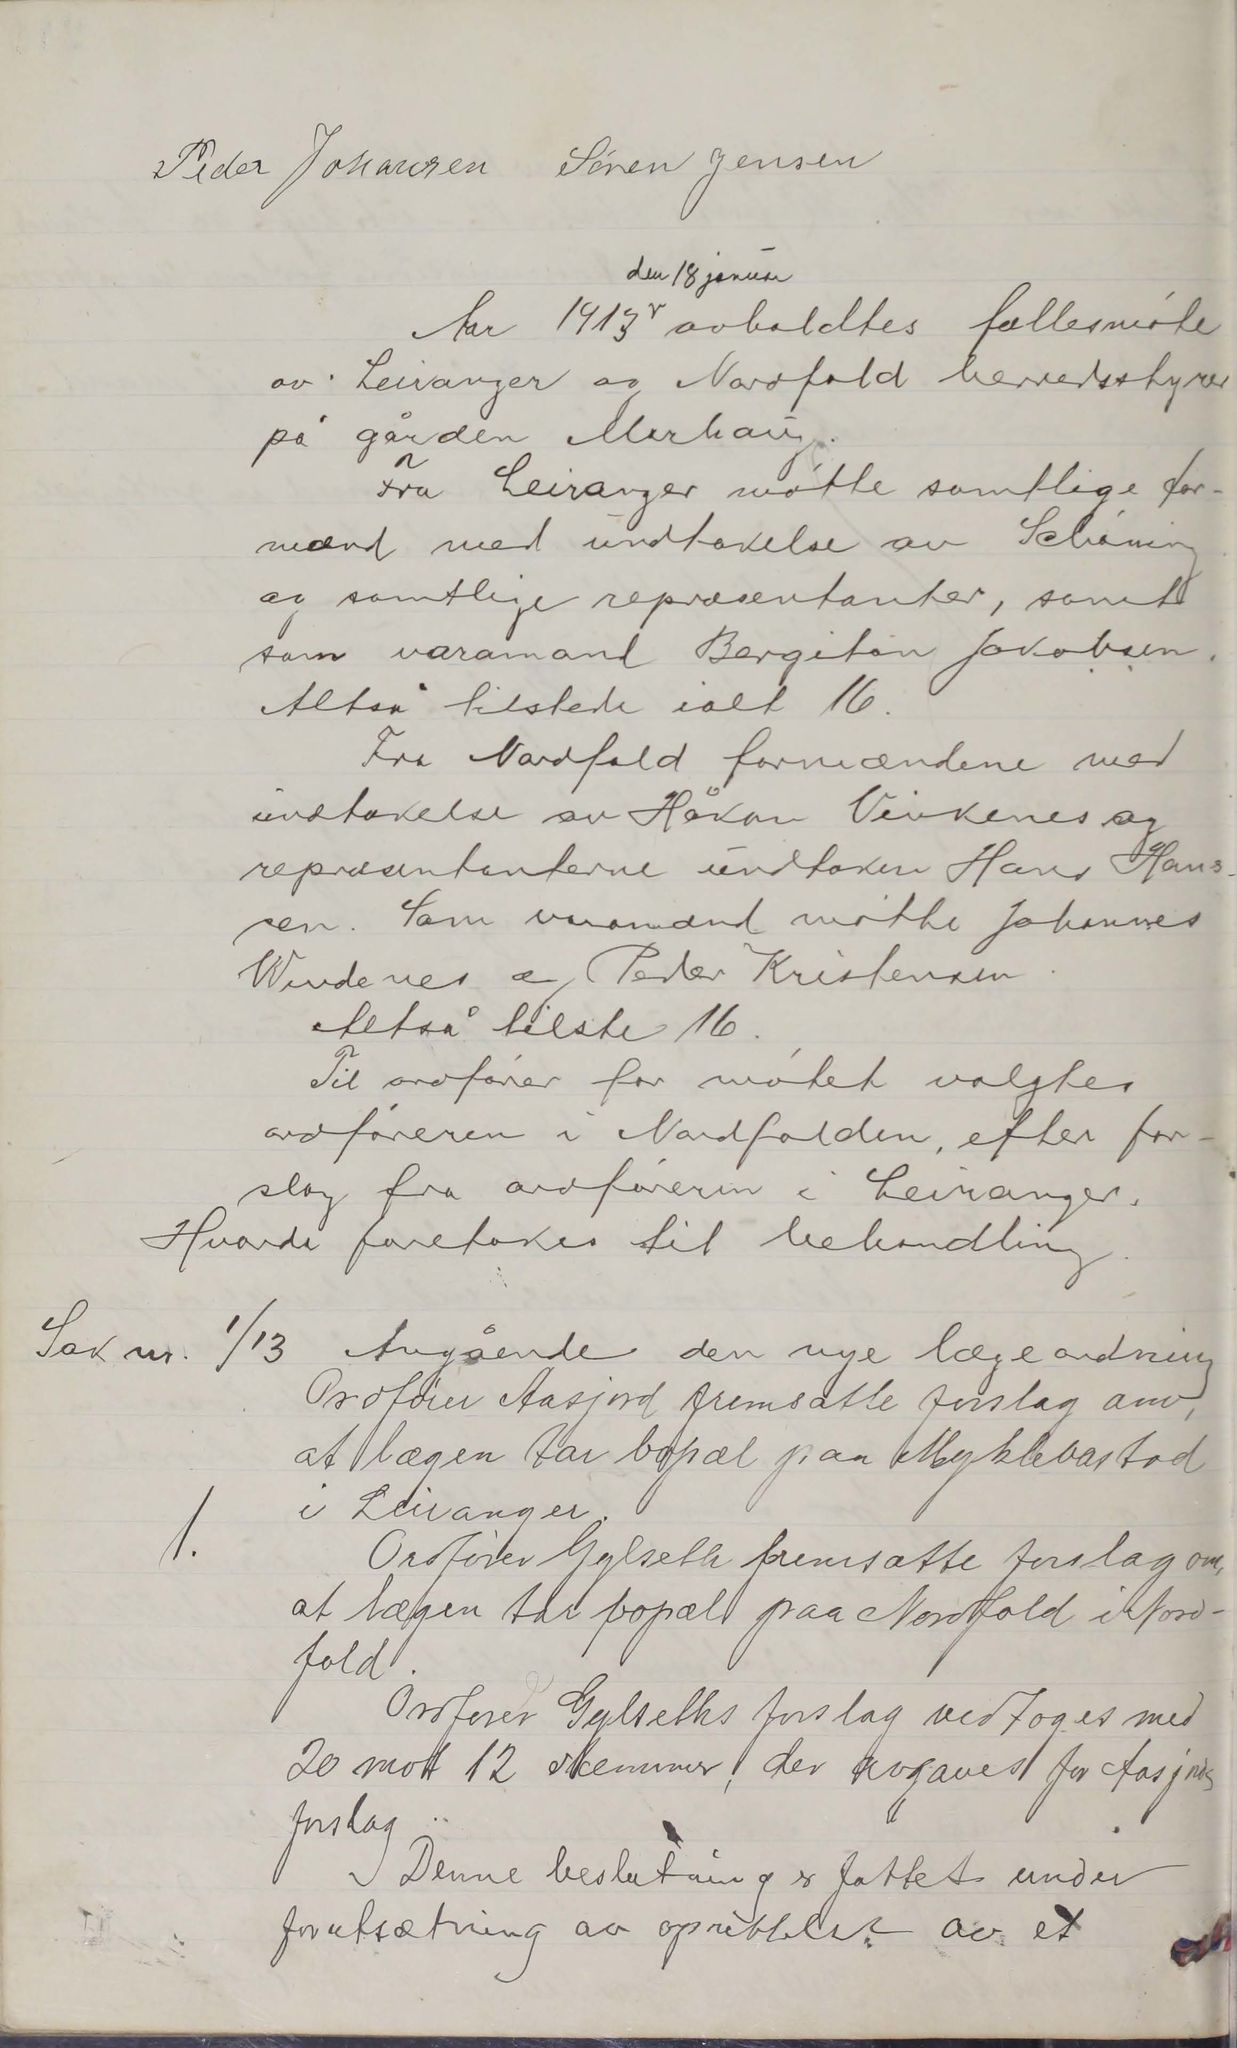 Peder Johansen Sören Jensen
den 18 januar
Aar 1913 avholdtes fællesmöte
av Leiranger og Nordfold herredsstyrer
på gården Mørhaug.
Fra Leiranger mötte samtlige for-
mænd med undtakelse av Schöning
og samtlige repræsentanter, samt
som varamand Bergiton Jakobsen.
Altså tilstede ialt 16.
Fra Nordfold formændene med
undtakelse av Håkon Vinkenes og
repræsentanterne undtaken Hans Hans-
sen. Som varamænd mötte Johannes
Windenes og Peder Kristensen.
Altså tilste 16.
Til ordförer for mötet valgtes
ordföreren i Nordfolden, efter for-
slag fra ordföreren i Leiranger.
Hvorda foretokes til behandling.
Sak nr. 1/13 Angående den nye lægeordning
Ordförer Aasjord fremsatte forslag om,
at lægen tar bopæl paa Myklebostad
i Leiranger.
1. Ordförer Gylseth fremsatte forslag om,
at lægen tar bopæl paa Nordfold i Nord-
fold.
Ordförer Gylseths forslag vedtoges med
20 mott 12 stemmer, der avgaves for Aasjords
forslag.
Denne beslutning er fattet under
forutsætning av oprettelse av et